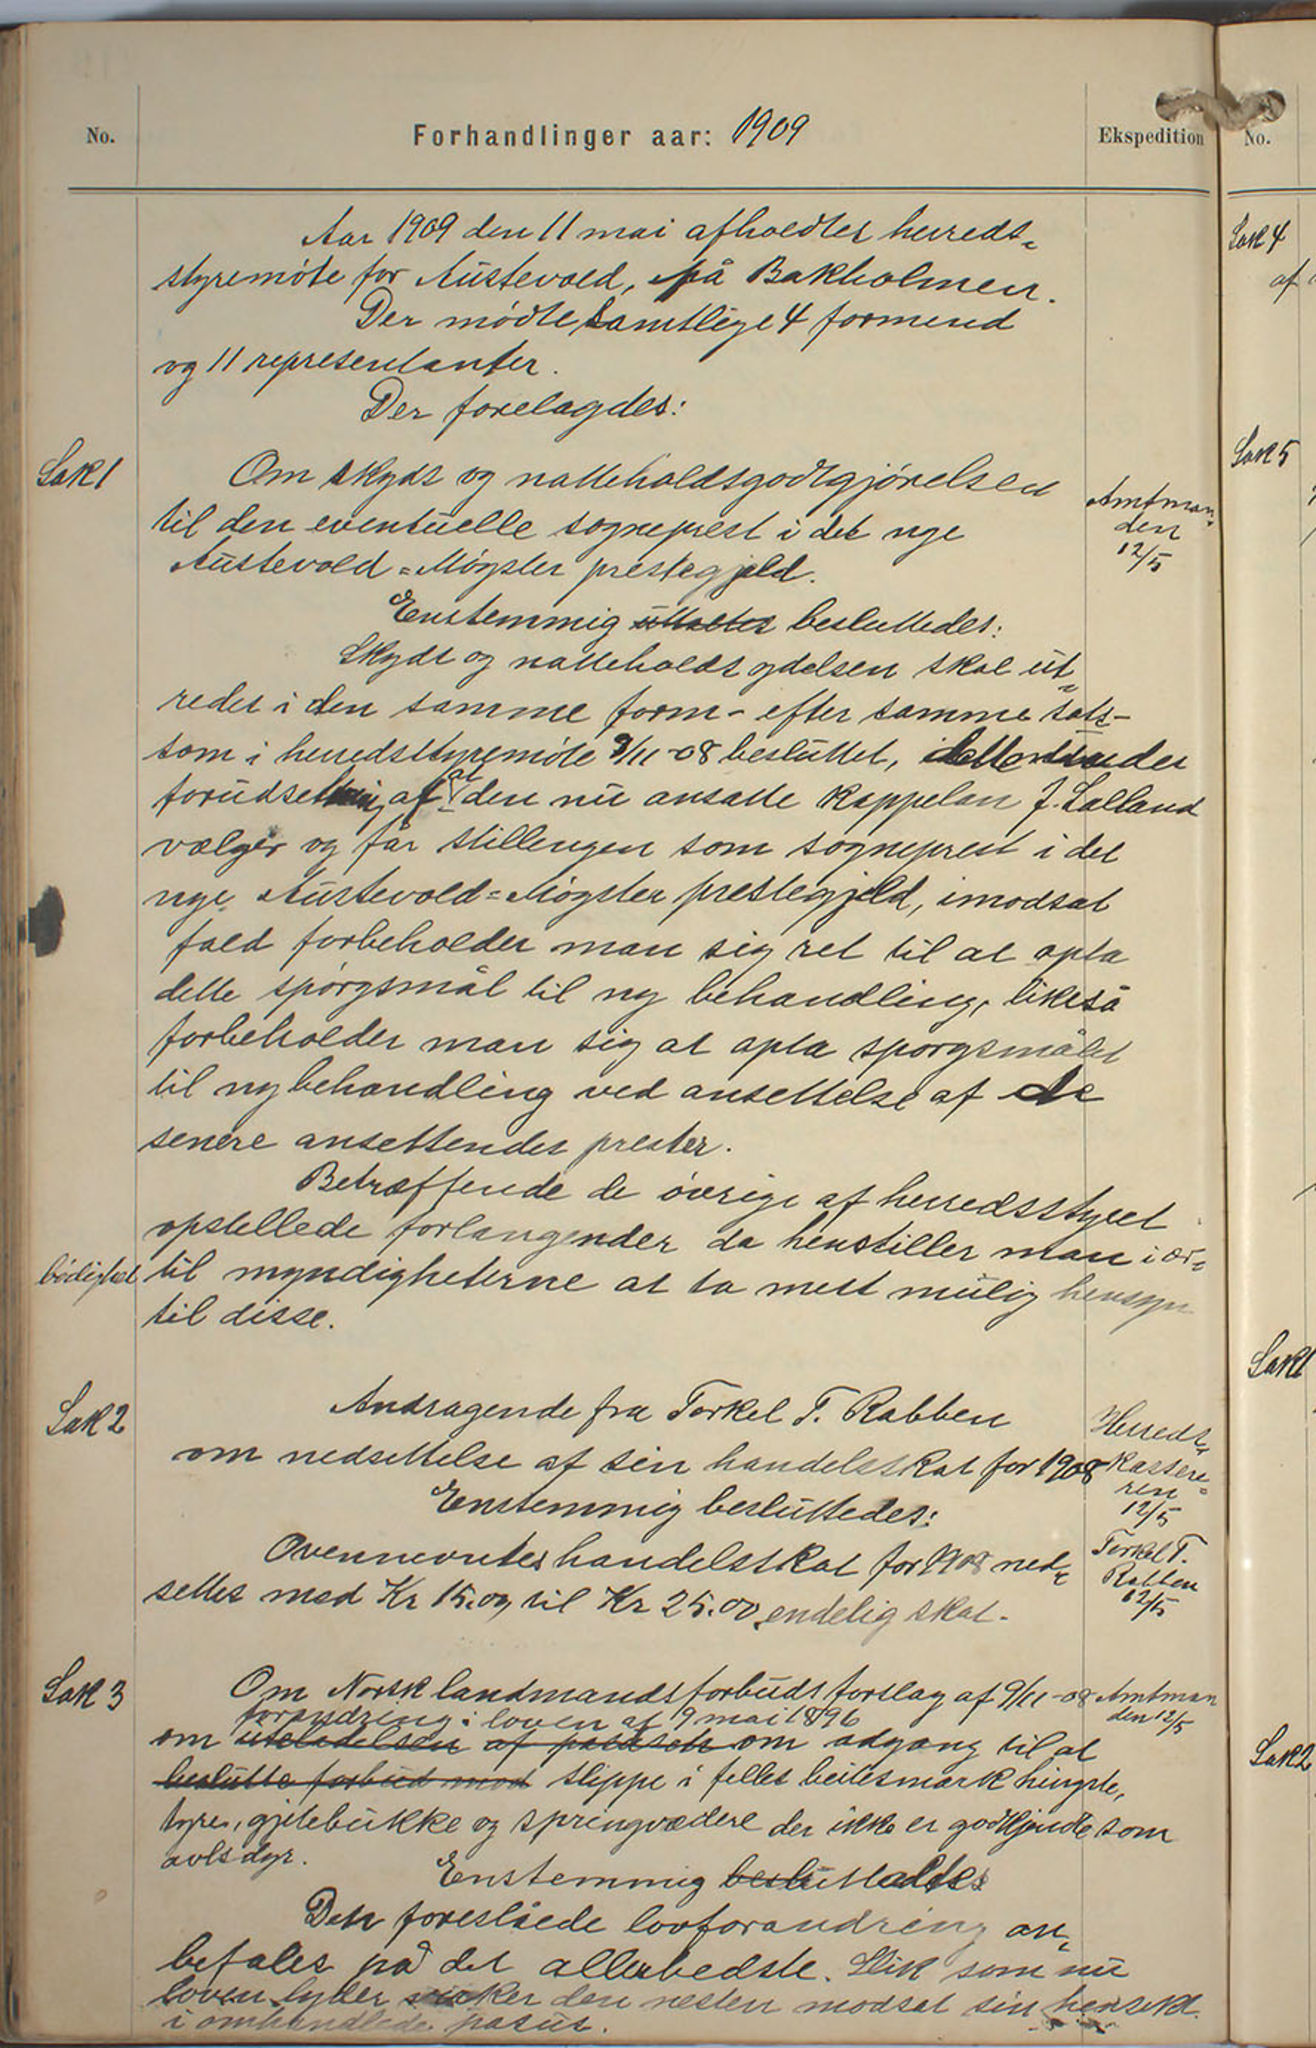 No.
Forhandlinger aar: 1909
Ekspedition
No.
Aar 1909 den 11 mai afholdtes herreds-
styremöte for Austevold, på Bakholmen.
Der mødte samtlige 4 formend
og 11 representanter.
Der forelagdes:
Sak 1
Om skyds og natteholdsgodtgjörelsen
til den eventuelle sogneprest i det nye
Austevold=Møgster prestegjeld.
Amtman-
den
12/5
Enstemmig uttaltes besluttedes:
Skyds og natteholdsydelsen skal ut-
redes i den samme form - efter samme sats -
som i herredsstyremöte 9/11-08 besluttet, dette under
forudsetning af at den nu ansatte kappelan J. Salland
vælger og får stillingen som sogneprest i det
nye Austevold=Møgster prestegjeld, i modsat
fald forbeholder man sig ret til at opta
dette spörgsmål til ny behandling, likeså
forbeholder man sig at opta spörgsmålet
til ny behandling ved ansettelse af de
senere ansettendes prester.
Betræffende de övrige af herredsstyret
opstellede forlangender da henstiller man i ær-
bödighet til myndigheterne at ta mest mulig hensyn
til disse.
Sak 2
Andragende fra Torkel T. Rabben
om nedsettelse af sin handelsskat for 1908
Enstemmig besluttedes:
Herreds-
kassere-
ren
12/5
Torkel T.
Rabben
12/5
Ovennevntes handelsskat for 1908 ned-
settes med Kr 15.00 til Kr 25.00 endelig skat.
Sak 3
Om Norsk landmandsforbuds forslag af 9/11-08
forandring i loven af 9 mai 1896
om utelidelsen af om adgang til at
beslutte forbud mod slippe i felles beitesmark hingste,
tyre, gjetebukke og springvædere der ikke er godkjendte som
avlsdyr.
Amtman
den 12/5
Enstemmig
Den foreslåede lovforandring an-
befales på det allerbedste. Slik som nu
loven lyder virker den nesten modsat sin hensikt
i omhandlede pasus.
Sak 4
af
Sak 5
Sak 1
Sak 2